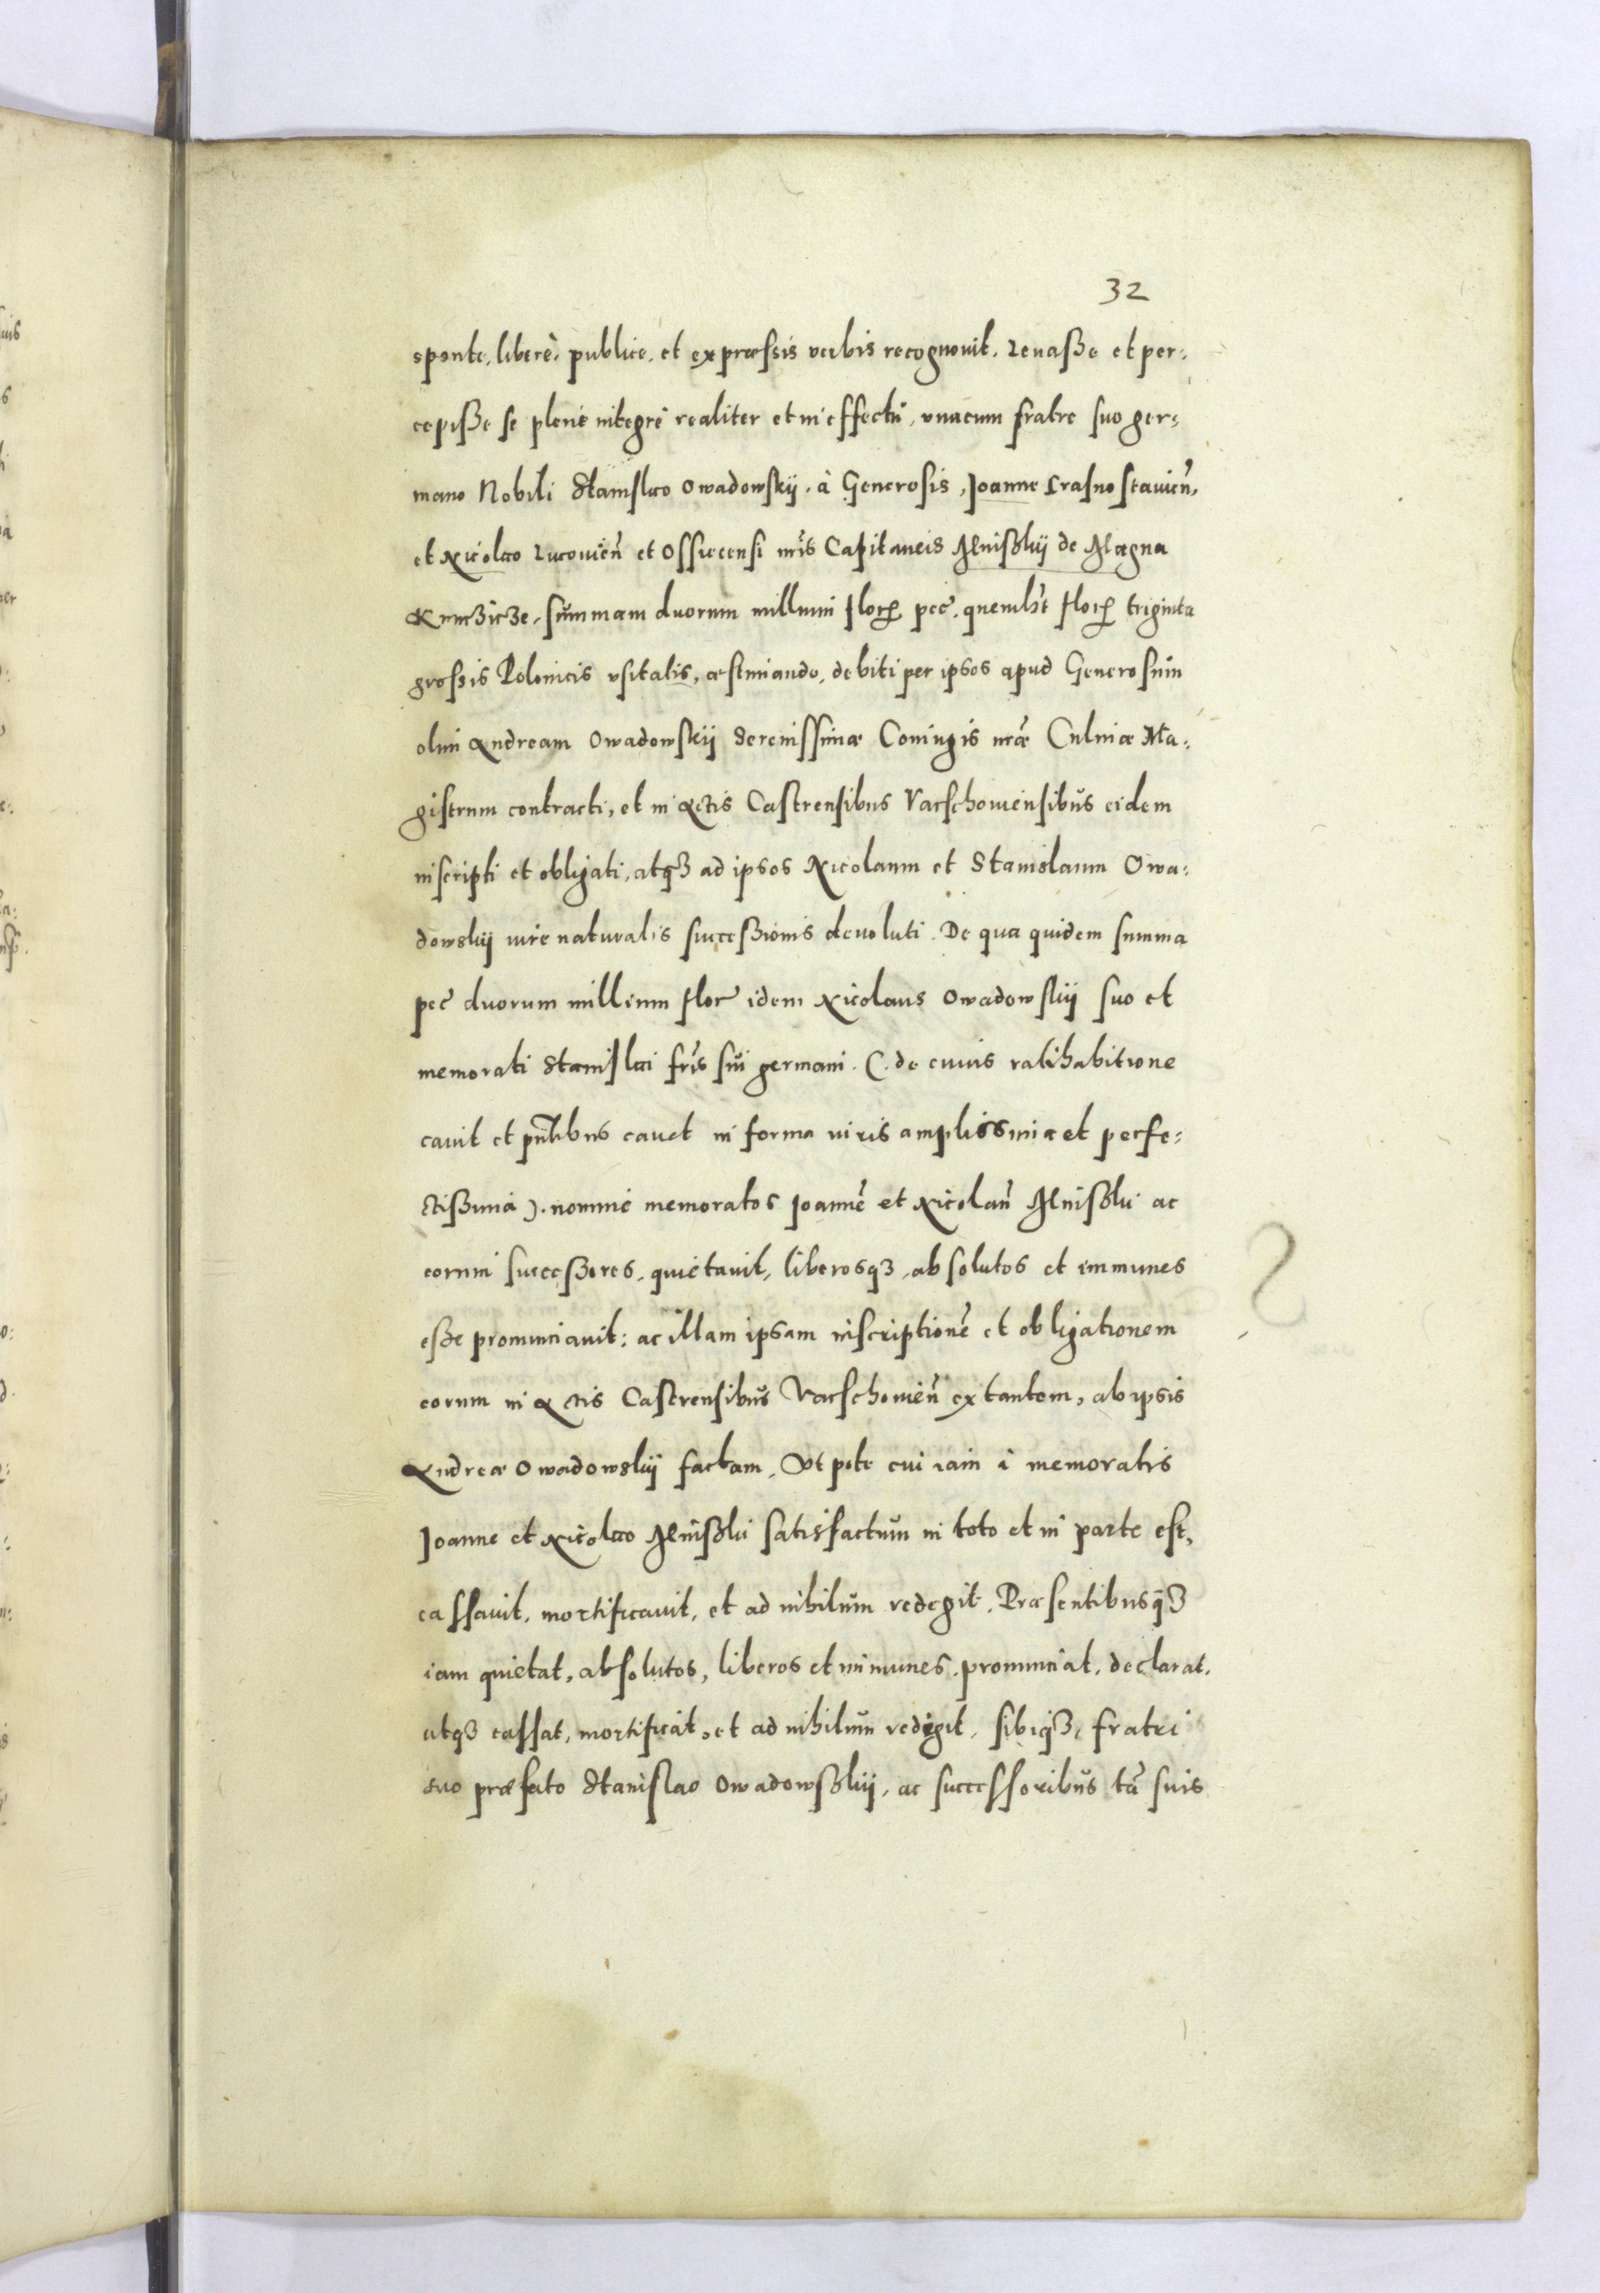 32
sponte, liberè, publice, et expræssis verbis recognouit, Leuaße et per-
cepiße se plenè integrè realiter et in effectũ, vnacum fratre suo ger-
mano Nobili Stanislao Owadowskij, à Generosis, Joanne Crasnostauień,
et Nicolao Lucouień et Ossiecensi nrĩs Capitaneis Mnißkij de Magna
Kunczicze, sũmmam duorum millium flor pec, quemlibt flor triginta
grossis Polonicis vsitatis, æstimando, debiti per ipsos apud Generosũm
olim Andream Owadowskij Serenissimæ Coniugis nræ Culinæ Ma-
gistrum contracti, et in Actis Castrensibus Varschouiensibũs eidem
inscripti et obligati, atqȝ ad ipsos Nicolaum et Stanislaum Owa-
dowskij iure naturalis successionis deuoluti. De qua quidem summa
pec duorum millium flor idem Nicolaus Owadowskij suo et
memorati Stanislai frĩs sũi germani. (. de cuius ratihabitione
cauit et pñtibus cauet in forma iuris amplissima et perfe-
ctißima ). nomine memoratos Joannẽ et Nicolaũ Mnißki ac
eorum succeßores, quietauit, liberosqȝ, absolutos et immunes
eße pronunciauit: ac illam ipsam inscriptionẽ et obligationem
eorum in Actis Castrensibũs Varschouień extantem, ab ipsis
Andreæ Owadowskij factam, Vt pote cui iam à memoratis
Joanne et Nicolao Mnißki satisfactũm in toto et in parte est,
cassauit, mortificauit, et ad nihilũm redegit, Præsentibusqȝ
iam quietat, absolutos, liberos et immunes, pronunciat, declarat,
atqȝ cassat, mortificat, et ad nihilum redigit, sibiqȝ, fratri
suo præfato Stanislao Owadowßkij, ac successoribũs tã suis